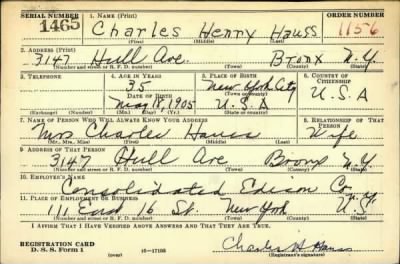 SERIAL NUMBER 1. NAME (Print) ORDER NUMBER
1465 Charles Henry Hauss 1156
(First) (Middle) (Last)
2. ADDRESS (Print)
3147 Hull Ave. Bronx N.Y.
(Number and street or R. F. D. number) (Town) (County) (State)
3. TELEPHONE 4. AGE IN YEARS 5. PLACE OF BIRTH 6. COUNTRY OF CITIZENSHIP
35 New York City
DATE OF BIRTH U.S.A
May 18, 1905 U.S.A
(Exchange) (Number) (Mo.) (Day) (Yr.) (Town or county) (State or country)
7. NAME OF PERSON WHO WILL ALWAYS KNOW YOUR ADDRESS 8. RELATIONSHIP OF THAT PERSON
Mrs Charles Hauss Wife
(Mr., Mrs., Miss) (First) (Middle) (Last)
9. ADDRESS OF THAT PERSON
3147 Hull Ave Bronx N.Y
(Number and street or R. F. D. number) (Town) (County) (State)
10. EMPLOYER'S NAME
Consolidated Edison Co
11. PLACE OF EMPLOYMENT OR BUSINESS
111 East 16 St. New York N.Y.
(Number and street or R. F. D. number) (Town) (County) (State)
I AFFIRM THAT I HAVE VERIFIED ABOVE ANSWERS AND THAT THEY ARE TRUE.
REGISTRATION CARD
D. S. S. Form 1 (over) 16-17105 Charles H Hauss
(Registrant's signature)